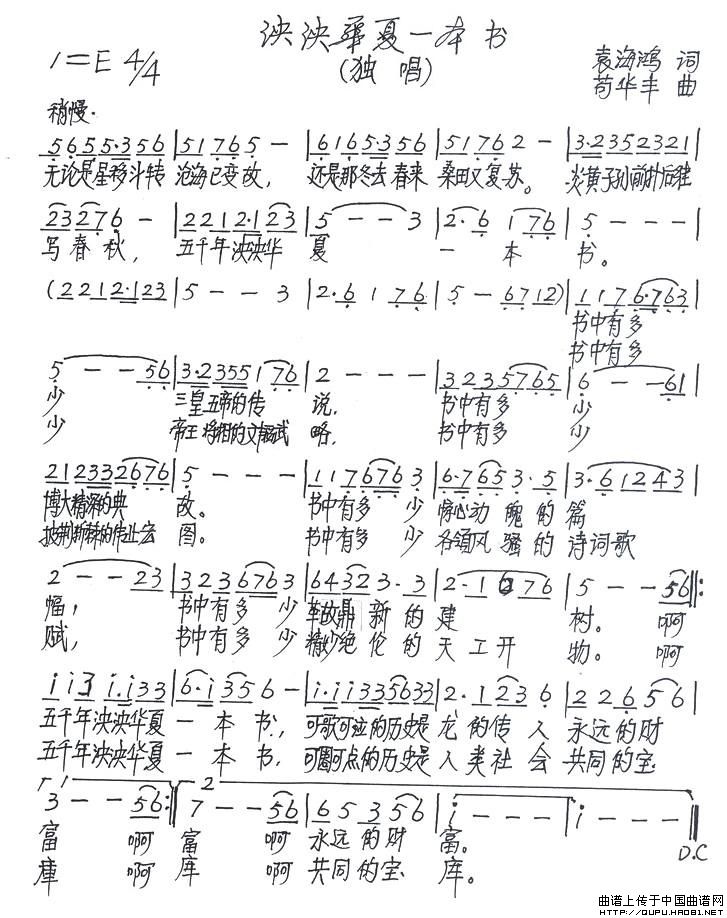 泱泱華夏一本书
(独唱)
1=E 4/4
袁海鸿 词
苟华丰 曲
稍慢.
5 6 5 5 5·3 5 6 | 5 1 7 6 5 — | 6 1 6 5·3 5 6 | 5 1 7 6 2 — | 3·2 3 5 2 3 2 1 |
无论是星移斗转 沧海已变故， 还是那冬去春来 桑田又复苏。 炎黄子孙前扑后继
2 3 2 7 6 — | 2 2 1 2·1 2 3 | 5 — — 3 | 2·6 1 7 6 | 5 — — — |
写春秋， 五千年泱泱华 夏 一 本 书。
(2 2 1 2·1 2 3 | 5 — — 3 | 2·6 1 7 6 | 5 — 6 7 1 2) | 1 1 7 6·7 6 3 |
书中有多
书中有多
5 — — 5 6 | 3·2 3 5 5 1 7 6 | 2 — — — | 3 2 3 5 7 6 5 | 6 — — 6 1 |
少 三皇五帝的传 说， 书中有多 少
少 帝王将相的文韬武 略， 书中有多 少
2 1 2 3 3 2 6 7 6 | 5 — — — | 1 1 7 6 7 6 3 | 6·7 6 5 3·5 | 3·6 1 2 4 3 |
博大精深的典 故。 书中有多 少 惊心动魄的篇
披荆斩棘的伟业宏 图。 书中有多 少 各领风骚的诗词歌
2 — — 2 3 | 3 2 3 6 7 6 3 | 6 4 3 2 3·3 | 2·1 6 7 6 | 5 — — 5 6 :|
幅， 书中有多 少 革故鼎新的建 树。 啊
赋， 书中有多 少 精妙绝伦的天工开 物。 啊
i i 3 i·i 3 3 | 6·i 3 5 6 — | i·i i 3 3 5 6 3 3 | 2·1 2 3 6 | 2 2 6 5 6 |
五千年泱泱华夏 一本书， 可歌可泣的历史是 龙的传人 永远的财
五千年泱泱华夏 一本书， 可圈可点的历史是 人类社会 共同的宝
1 2
3 — — 5 6 :| 7 — — 5 6 | 6 5 3 5 6 | i — — — | i — — — ||
富 啊 富 啊 永远的财 富。
庫 啊 库 啊 共同的宝 库。
D.C
曲谱上传于中国曲谱网
http://QUPU.HAO81.NET